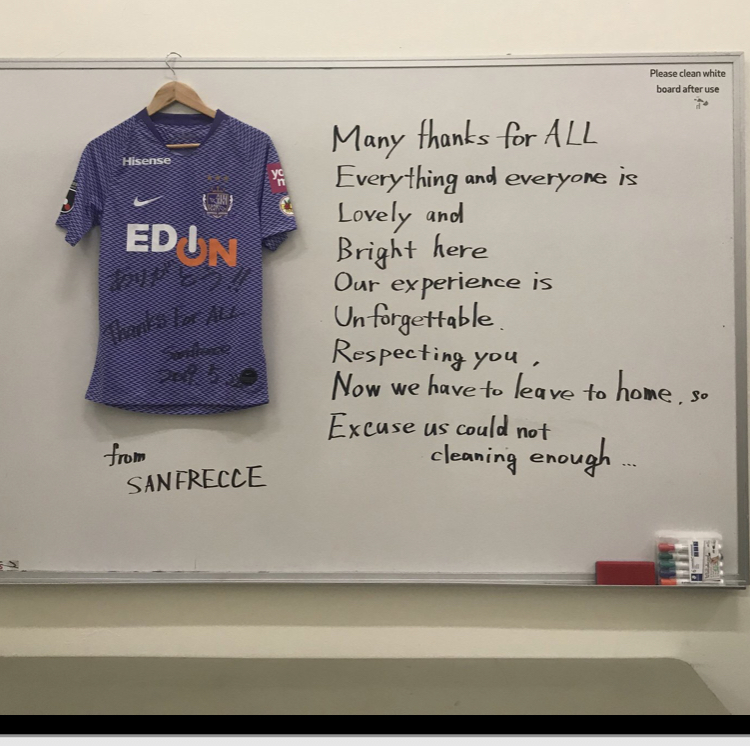 Please clean white
board after use
Hisense
EDION
ありがとう!!
Thanks for ALL
Sanfrecce
from
SANFRECCE
Many thanks for ALL
Everything and everyone is
Lovely and
Bright here
Our experience is
Unforgettable.
Respecting you,
Now we have to leave to home. so
Excuse us could not
cleaning enough ...